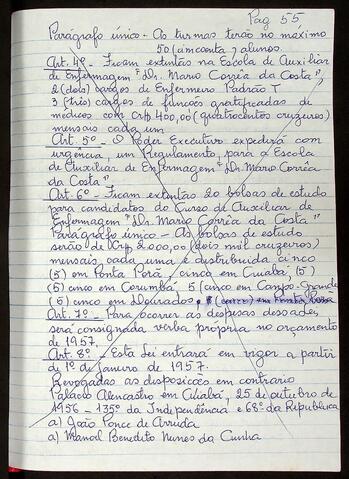 Pag 55
Parágrafo único - As turmas terão no máximo
50 (cinconta) alunos.
Art. 4º - Ficam extentas na Escola de Auxiliar
de Enfermagem "Dr. Mario Corrêa da Costa",
2 (dois) cargos de Enfermeiro Padrão T
3 (três) cargos de funcões gratificadas de
médicos com Cr$ 400,00 (quatrocentos cruzeiros)
mensais cada um
Art. 5º - O Poder Executivo expederá com
urgência, um Regulamento, para a Escola
de Auxiliar de Enfermagem "Dr. Mario Corrêa
da Costa"
Art. 6º - Ficam extentas 20 bolsas de estudo
para candidatos do Curso de Auxiliar de
Enfermagem "Dr. Mario Corrêa da Costa"
Parágrafo único - As bolsas de estudo
serão de Cr$ 2.000,00 (dois mil cruzeiros)
mensais cada uma e distribuida cinco
(5) em Ponta Porã, cinco em Cuiabá, (5)
(5) cinco em Corumbá 5 (cinco em Campo-Grande
(5) cinco em Dourados
Art. 7º - Para ocorrer as despesas dessa lei,
será consignada verba própria no orçamento
de 1957.
Art. 8º - Esta Lei entrará em vigor a partir
de 1º de Janeiro de 1957.
Revogadas as disposicões em contrário
Palácio Alencastro em Cuiabá, 25 de outubro de
1956 - 135º da Independência e 68º da República
a) João Ponce de Arruda
a) Manoel Benedito Nunes da Cunha